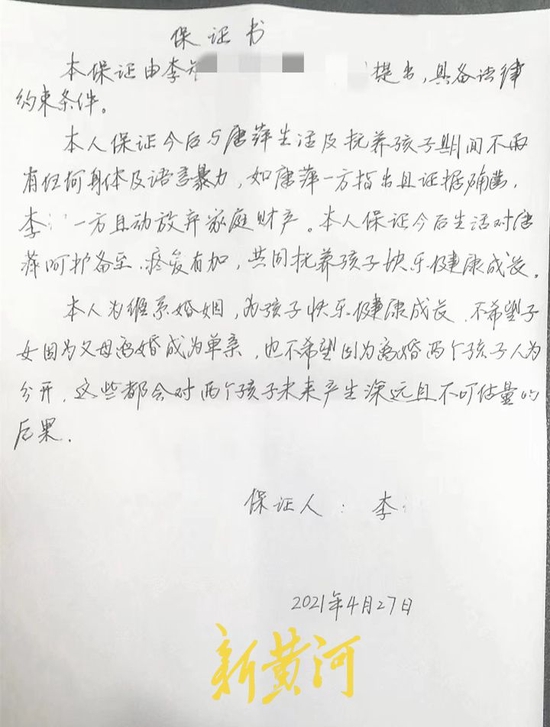 保证书
本保证由李 提出，具备法律
约束条件。
本人保证今后与唐萍生活及抚养孩子期间不再
有任何身体及语言暴力，如唐萍一方指出且证据确凿，
李 一方自动放弃家庭财产。本人保证今后生活对唐
萍呵护备至，疼爱有加，共同抚养孩子快乐健康成长。
本人为维系婚姻，为孩子快乐健康成长，不希望子
女因为父母离婚成为单亲，也不希望因为离婚两个孩子人为
分开，这些都会对两个孩子未来产生深远且不可估量的
后果．
保证人：李
2021年4月27日
新黄河